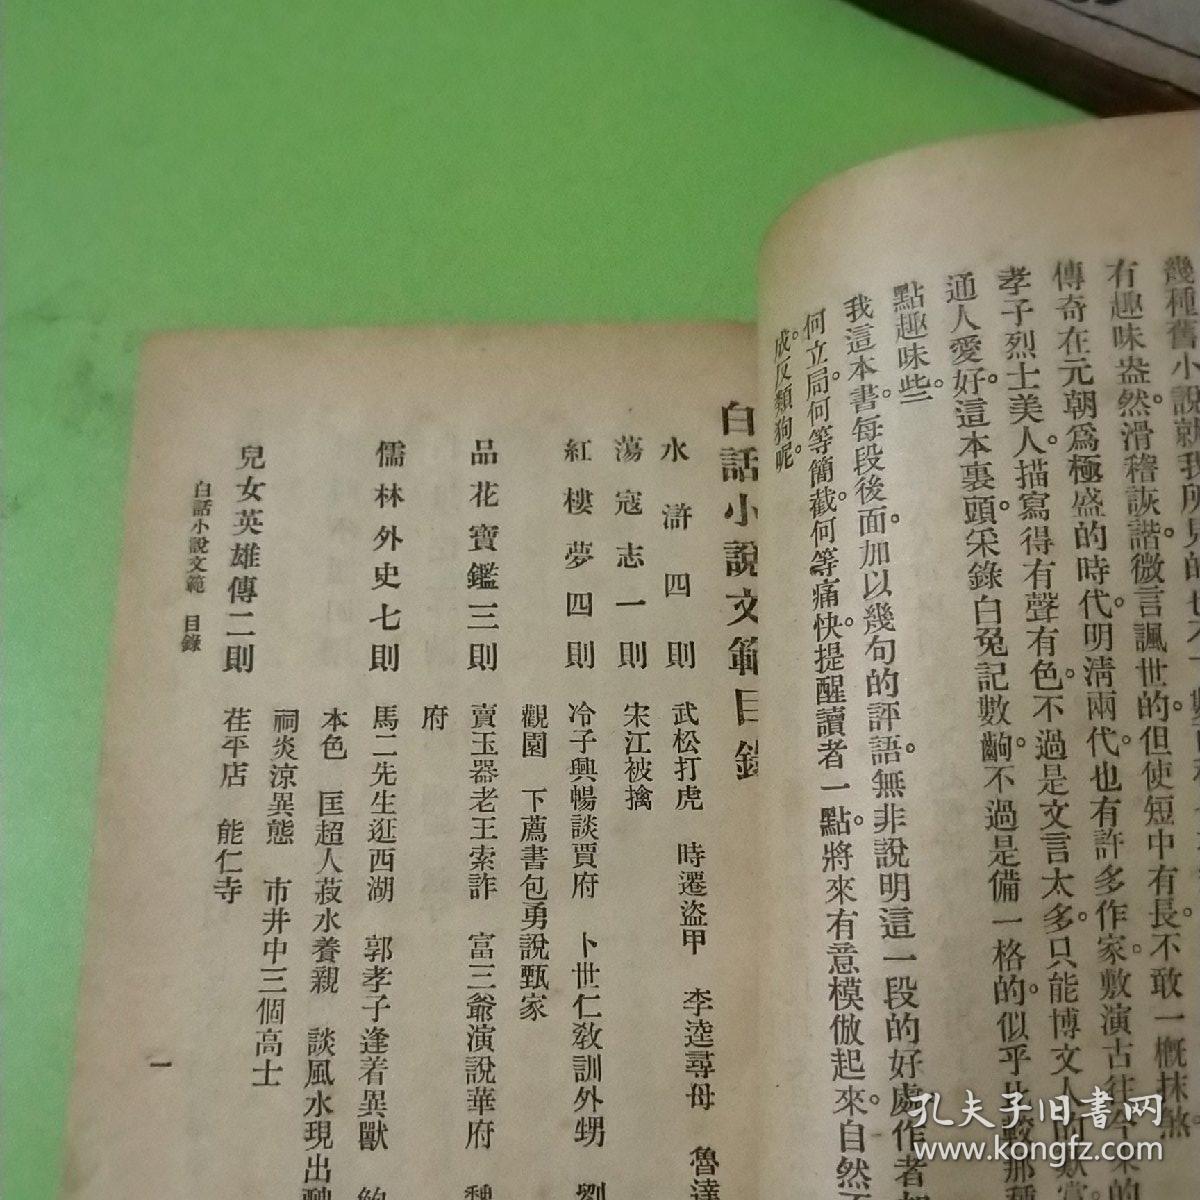 幾種舊小說就我所見的也不
有趣味盎然。滑稽詼諧。微言諷世的。但使短中有長。不敢一概抹煞
傳奇在元朝爲極盛的時代。明清兩代。也有許多作家。敷演古往今來的
孝子烈士美人。描寫得有聲有色。不過是文言太多。只能博文人的歎賞
通人愛好。這本裏頭。采錄白兔記數齣。不過是備一格的。似乎比較那種
點趣味些。
我這本書。每段後面。加以幾句的評語。無非說明這一段的好處。作者
何立局。何等簡截。何等痛快。提醒讀者一點。將來有意模倣起來。自然不
成反類狗呢。
白話小說文範目錄
水滸四則 武松打虎 時遷盜甲 李逵尋母 魯達
蕩寇志一則 宋江被擒
紅樓夢四則 冷子興暢談賈府 卜世仁教訓外甥 劉
觀園 下薦書包勇說甄家
品花寶鑑三則 賣玉器老王索詐 富三爺演說華府 魏
府
儒林外史七則 馬二先生逛西湖 郭孝子逢着異獸 鮑
本色 匡超人菽水養親 談風水現出
祠炎涼異態 市井中三個高士
兒女英雄傳二則 茌平店 能仁寺
白話小說文範 目錄
一
孔夫子旧书网
www.kongfz.com